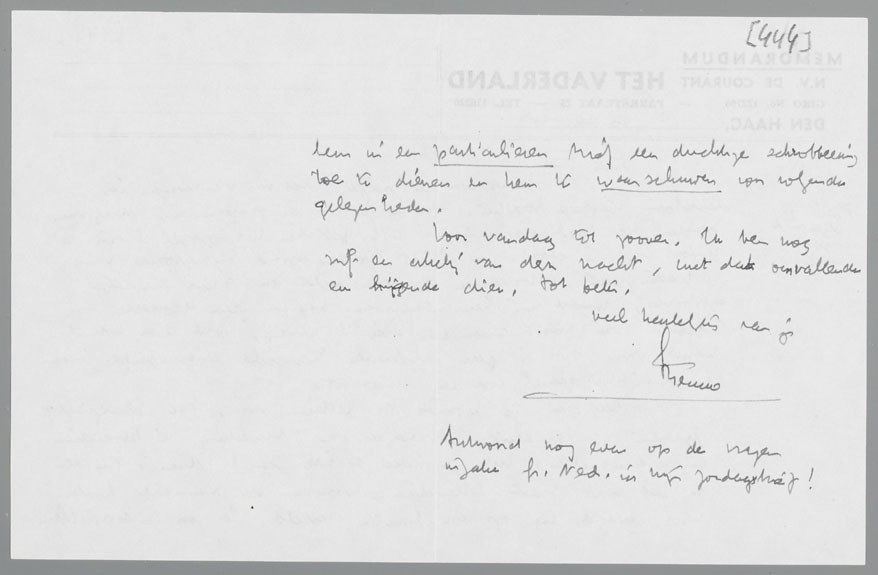 [444]
MEMORANDUM
N.V. DE COURANT HET VADERLAND
PARKSTRAAT 25 — TEL.
DEN HAAG,
hem in een particulieren brief een duchtige schrobbeering
toe te dienen en hem te waarschuwen voor volgende
gelegenheden.
Voor vandaag tot zoover. Ik ben nog
suf en van den nacht, met dat omvallende
en hijgende dier. Tot
veel hartelijks van je
Menno
Antwoord nog even op de vragen
inzake Gr. Ned. in mijn Zondagsbrief!